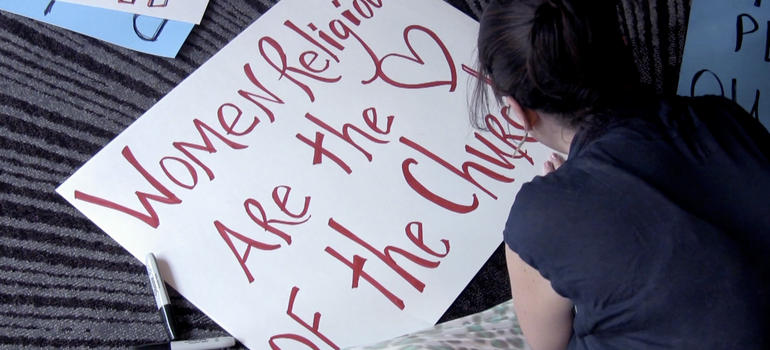 Women Religious
Are the ♡
of the Church